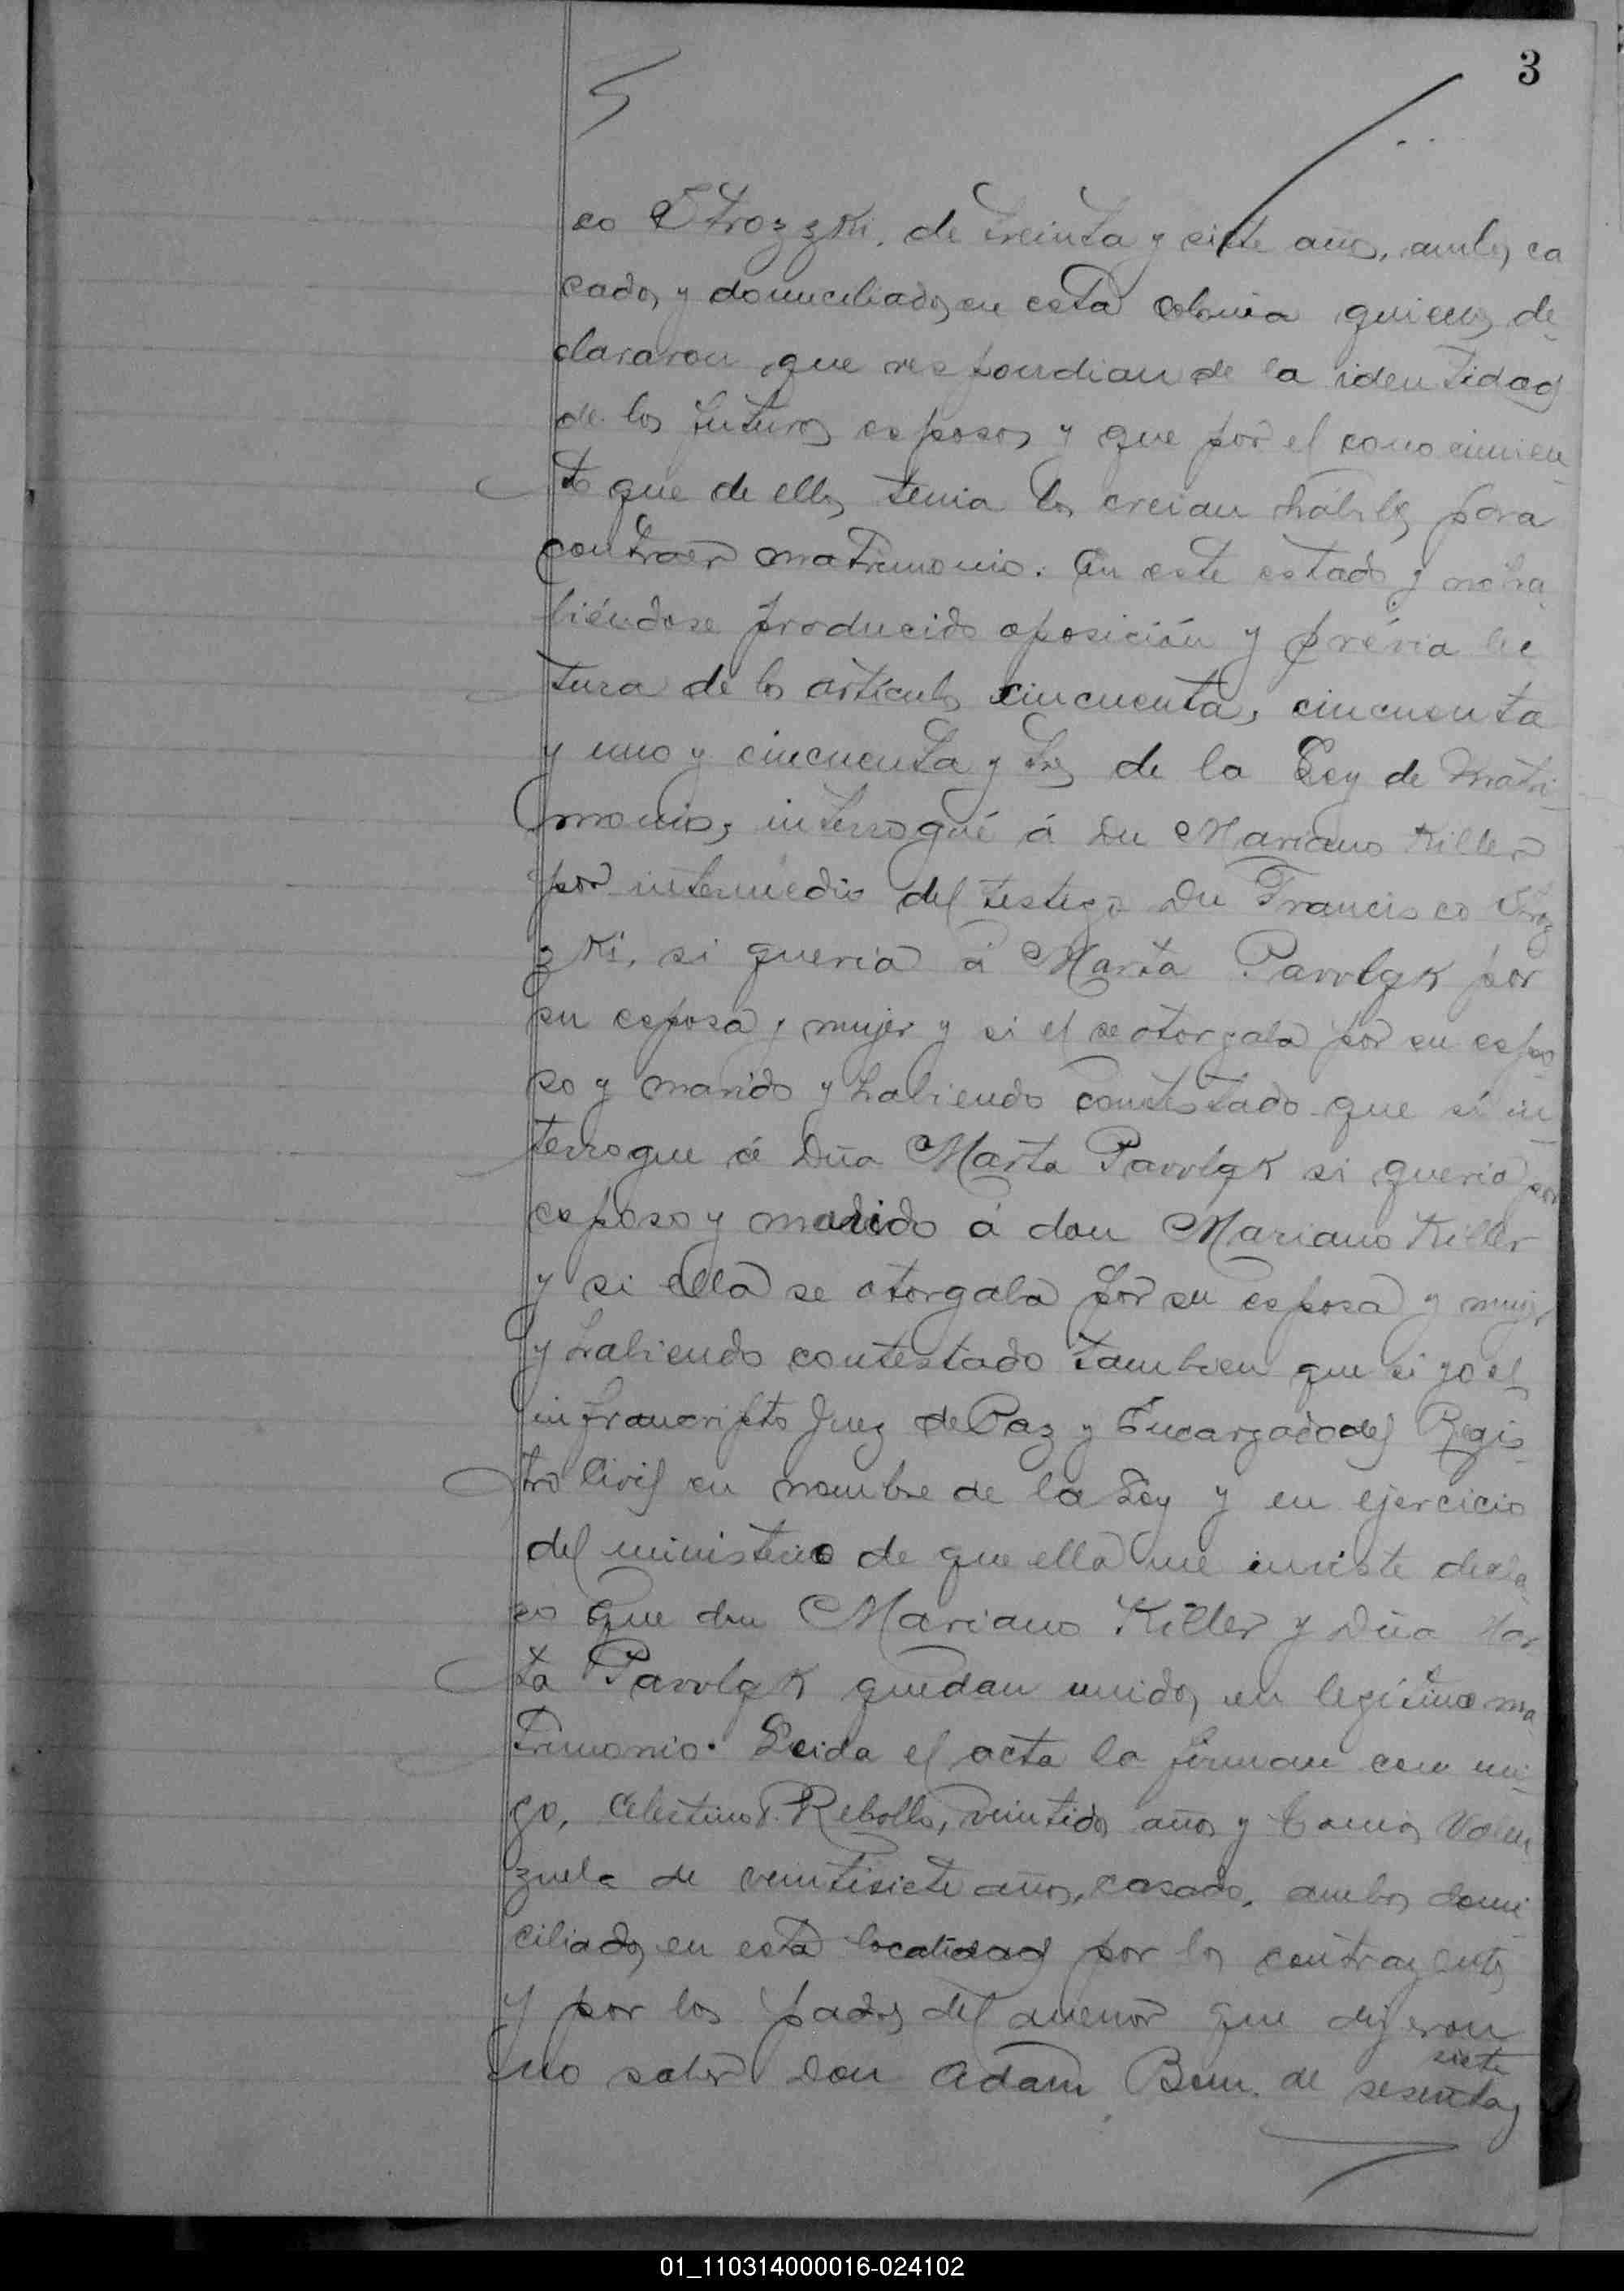 3
co Strozzki, de treinta y siete años, ambos ca
sados y domiciliados en esta colonia quienes de-
clararon que respondian de la identidad
de los futuros esposos y que por el conocimien-
to que de ellos tenia los creian hábiles para
contraer matrimonio. En este estado y no ha-
biéndose producido oposición y prévia lec
tura de los artículos cincuenta, cincuenta
y uno y cincuenta y tres de la Ley de Matri-
monio, interrogué á Dn Mariano Killer
por intermedio del testigo Dn Francisco Stroz
zki, si queria á Marta Pavvlqk por
su esposa y mujer y si el se otorgaba por su espo-
so y marido y habiendo contestado que si in-
terrogue á Dña Marta Pavvlqk si queria por
esposo y marido á don Mariano Killer
y si ella se otorgaba por su esposa y mujer
y habiendo contestado tambien que si yo el
infrascripto Juez de Paz y Encargado del Regis-
tro Civil en nombre de la Ley y en ejercicio
del ministerio de que ella me inviste decla-
ro que don Mariano Killer y Dña Mar
ta Pavvlqk quedan unidos en legítimo ma
trimonio. Leida el acta la firman con mi-
go, Celestino P. Rebollo, veintidos años y Tomas Valen
zuela de veintisiete años, casado, ambos domi
ciliados en esta localidad por los contrayentes
y por los padres del menor que dijeron
no saber Don Adam Bem de sesenta y
siete
01_110314000016-024102